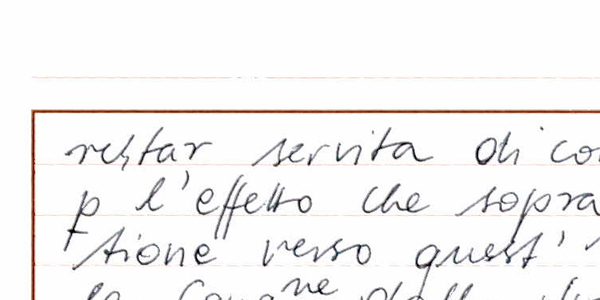 restar servita di co
p l'effetto che sopra
tione verso quest'